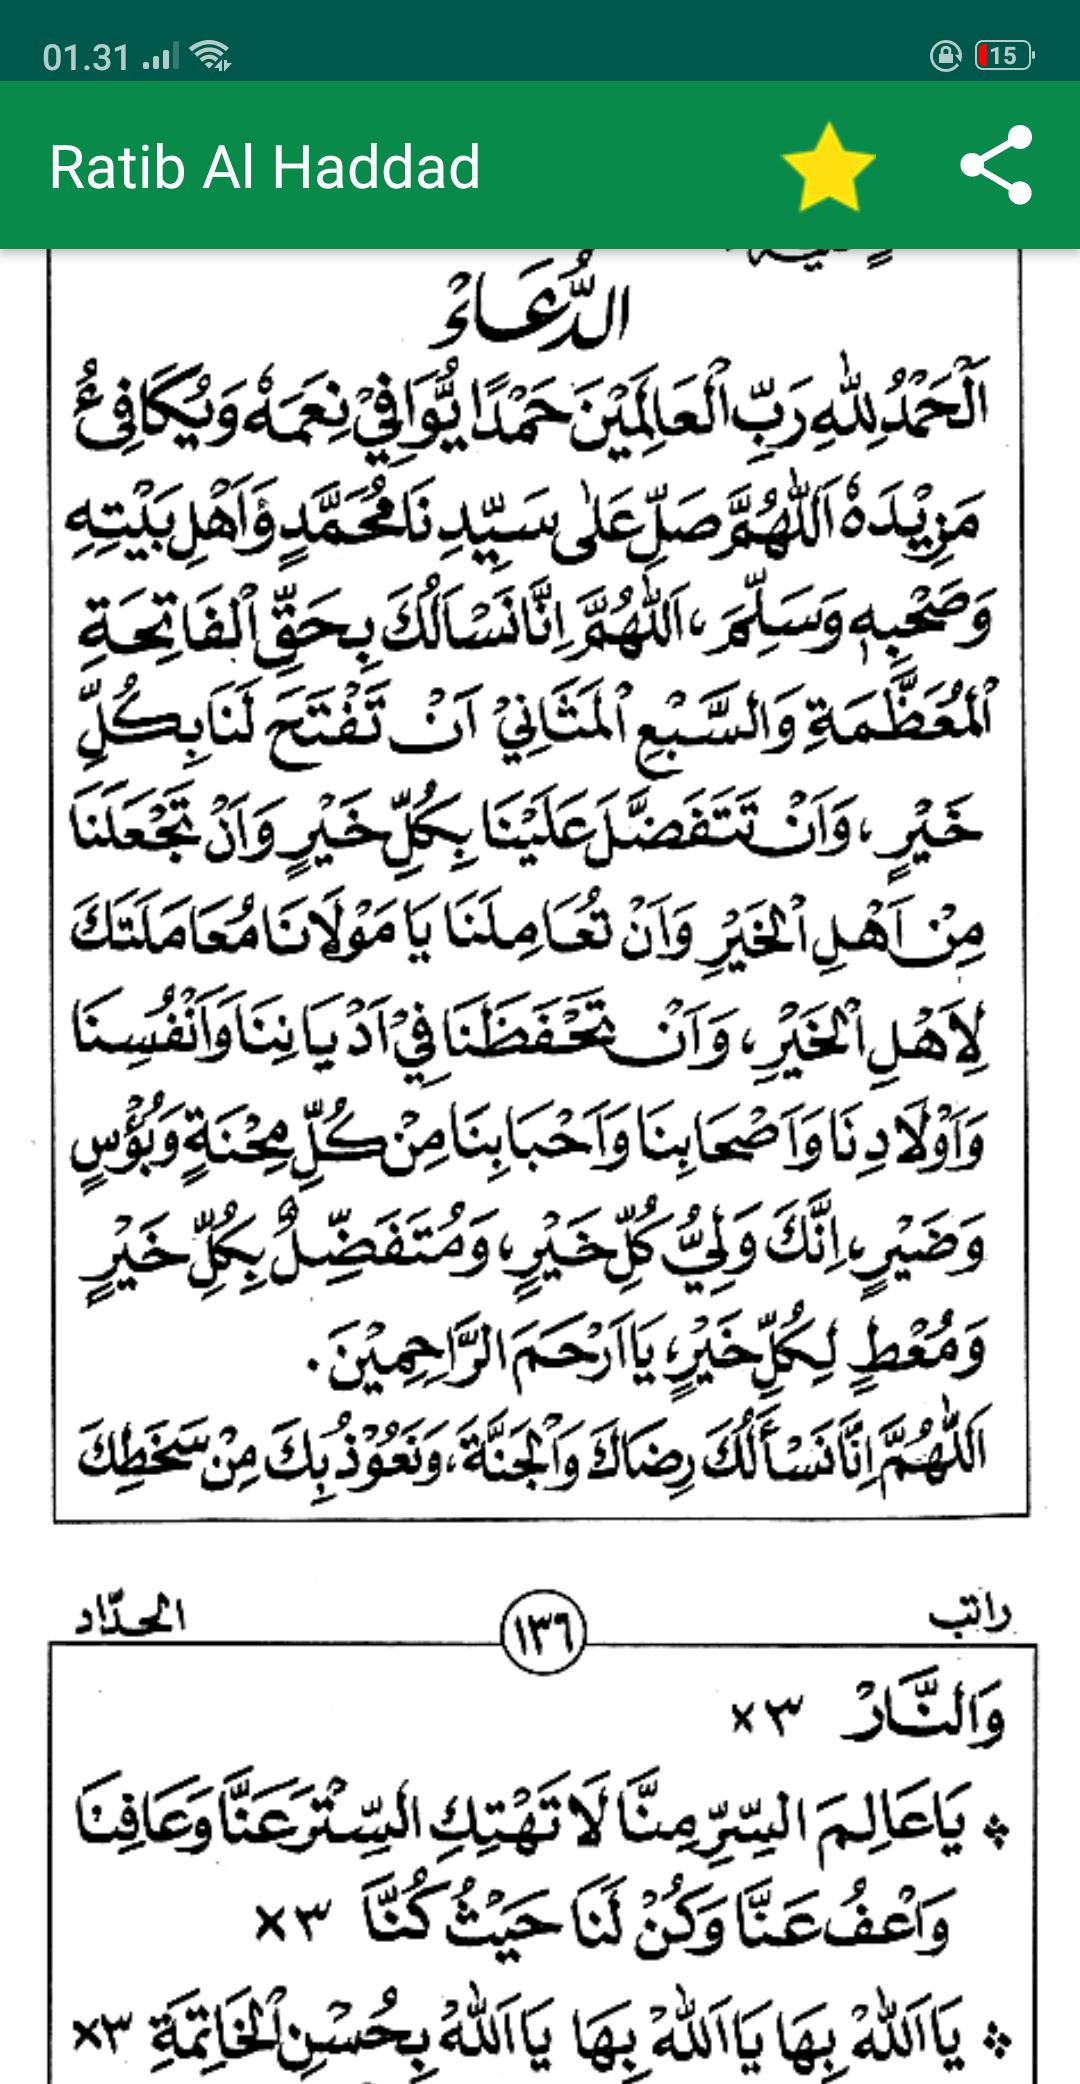 01.31
15
Ratib Al Haddad
الدُّعَاءُ
اَلْحَمْدُ لِلّٰهِ رَبِّ الْعَالَمِيْنَ حَمْدًا يُّوَافِيْ نِعَمَهٗ وَيُكَافِئُ
مَزِيْدَهٗ اَللّٰهُمَّ صَلِّ عَلٰى سَيِّدِنَا مُحَمَّدٍ وَّاَهْلِ بَيْتِهِ
وَصَحْبِهٖ وَسَلِّمْ، اَللّٰهُمَّ اِنَّا نَسْاَلُكَ بِحَقِّ الْفَاتِحَةِ
الْمُعَظَّمَةِ وَالسَّبْعِ الْمَثَانِيْ اَنْ تَفْتَحَ لَنَا بِكُلِّ
خَيْرٍ، وَاَنْ تَتَفَضَّلَ عَلَيْنَا بِكُلِّ خَيْرٍ وَاَنْ تَجْعَلَنَا
مِنْ اَهْلِ الْخَيْرِ وَاَنْ تُعَامِلَنَا يَا مَوْلَانَا مُعَامَلَتَكَ
لِاَهْلِ الْخَيْرِ، وَاَنْ تَحْفَظَنَا فِيْ اَدْيَانِنَا وَاَنْفُسِنَا
وَاَوْلَادِنَا وَاَصْحَابِنَا وَاَحْبَابِنَا مِنْ كُلِّ مِحْنَةٍ وَبُؤْسٍ
وَضَيْرٍ، اِنَّكَ وَلِيُّ كُلِّ خَيْرٍ، وَمُتَفَضِّلٌ بِكُلِّ خَيْرٍ
وَمُعْطٍ لِكُلِّ خَيْرٍ، يَا اَرْحَمَ الرَّاحِمِيْنَ.
اَللّٰهُمَّ اِنَّا نَسْأَلُكَ رِضَاكَ وَالْجَنَّةَ، وَنَعُوْذُ بِكَ مِنْ سَخَطِكَ
راتب ١٣٦ الحدّاد
وَالنَّارْ ٣×
يَا عَالِمَ السِّرِّ مِنَّا لَا تَهْتِكِ السِّتْرَ عَنَّا وَعَافِنَا
وَاعْفُ عَنَّا وَكُنْ لَنَا حَيْثُ كُنَّا ٣×
يَا اَللّٰهُ بِهَا يَا اَللّٰهُ بِهَا يَا اَللّٰهُ بِحُسْنِ الْخَاتِمَةِ ٣×